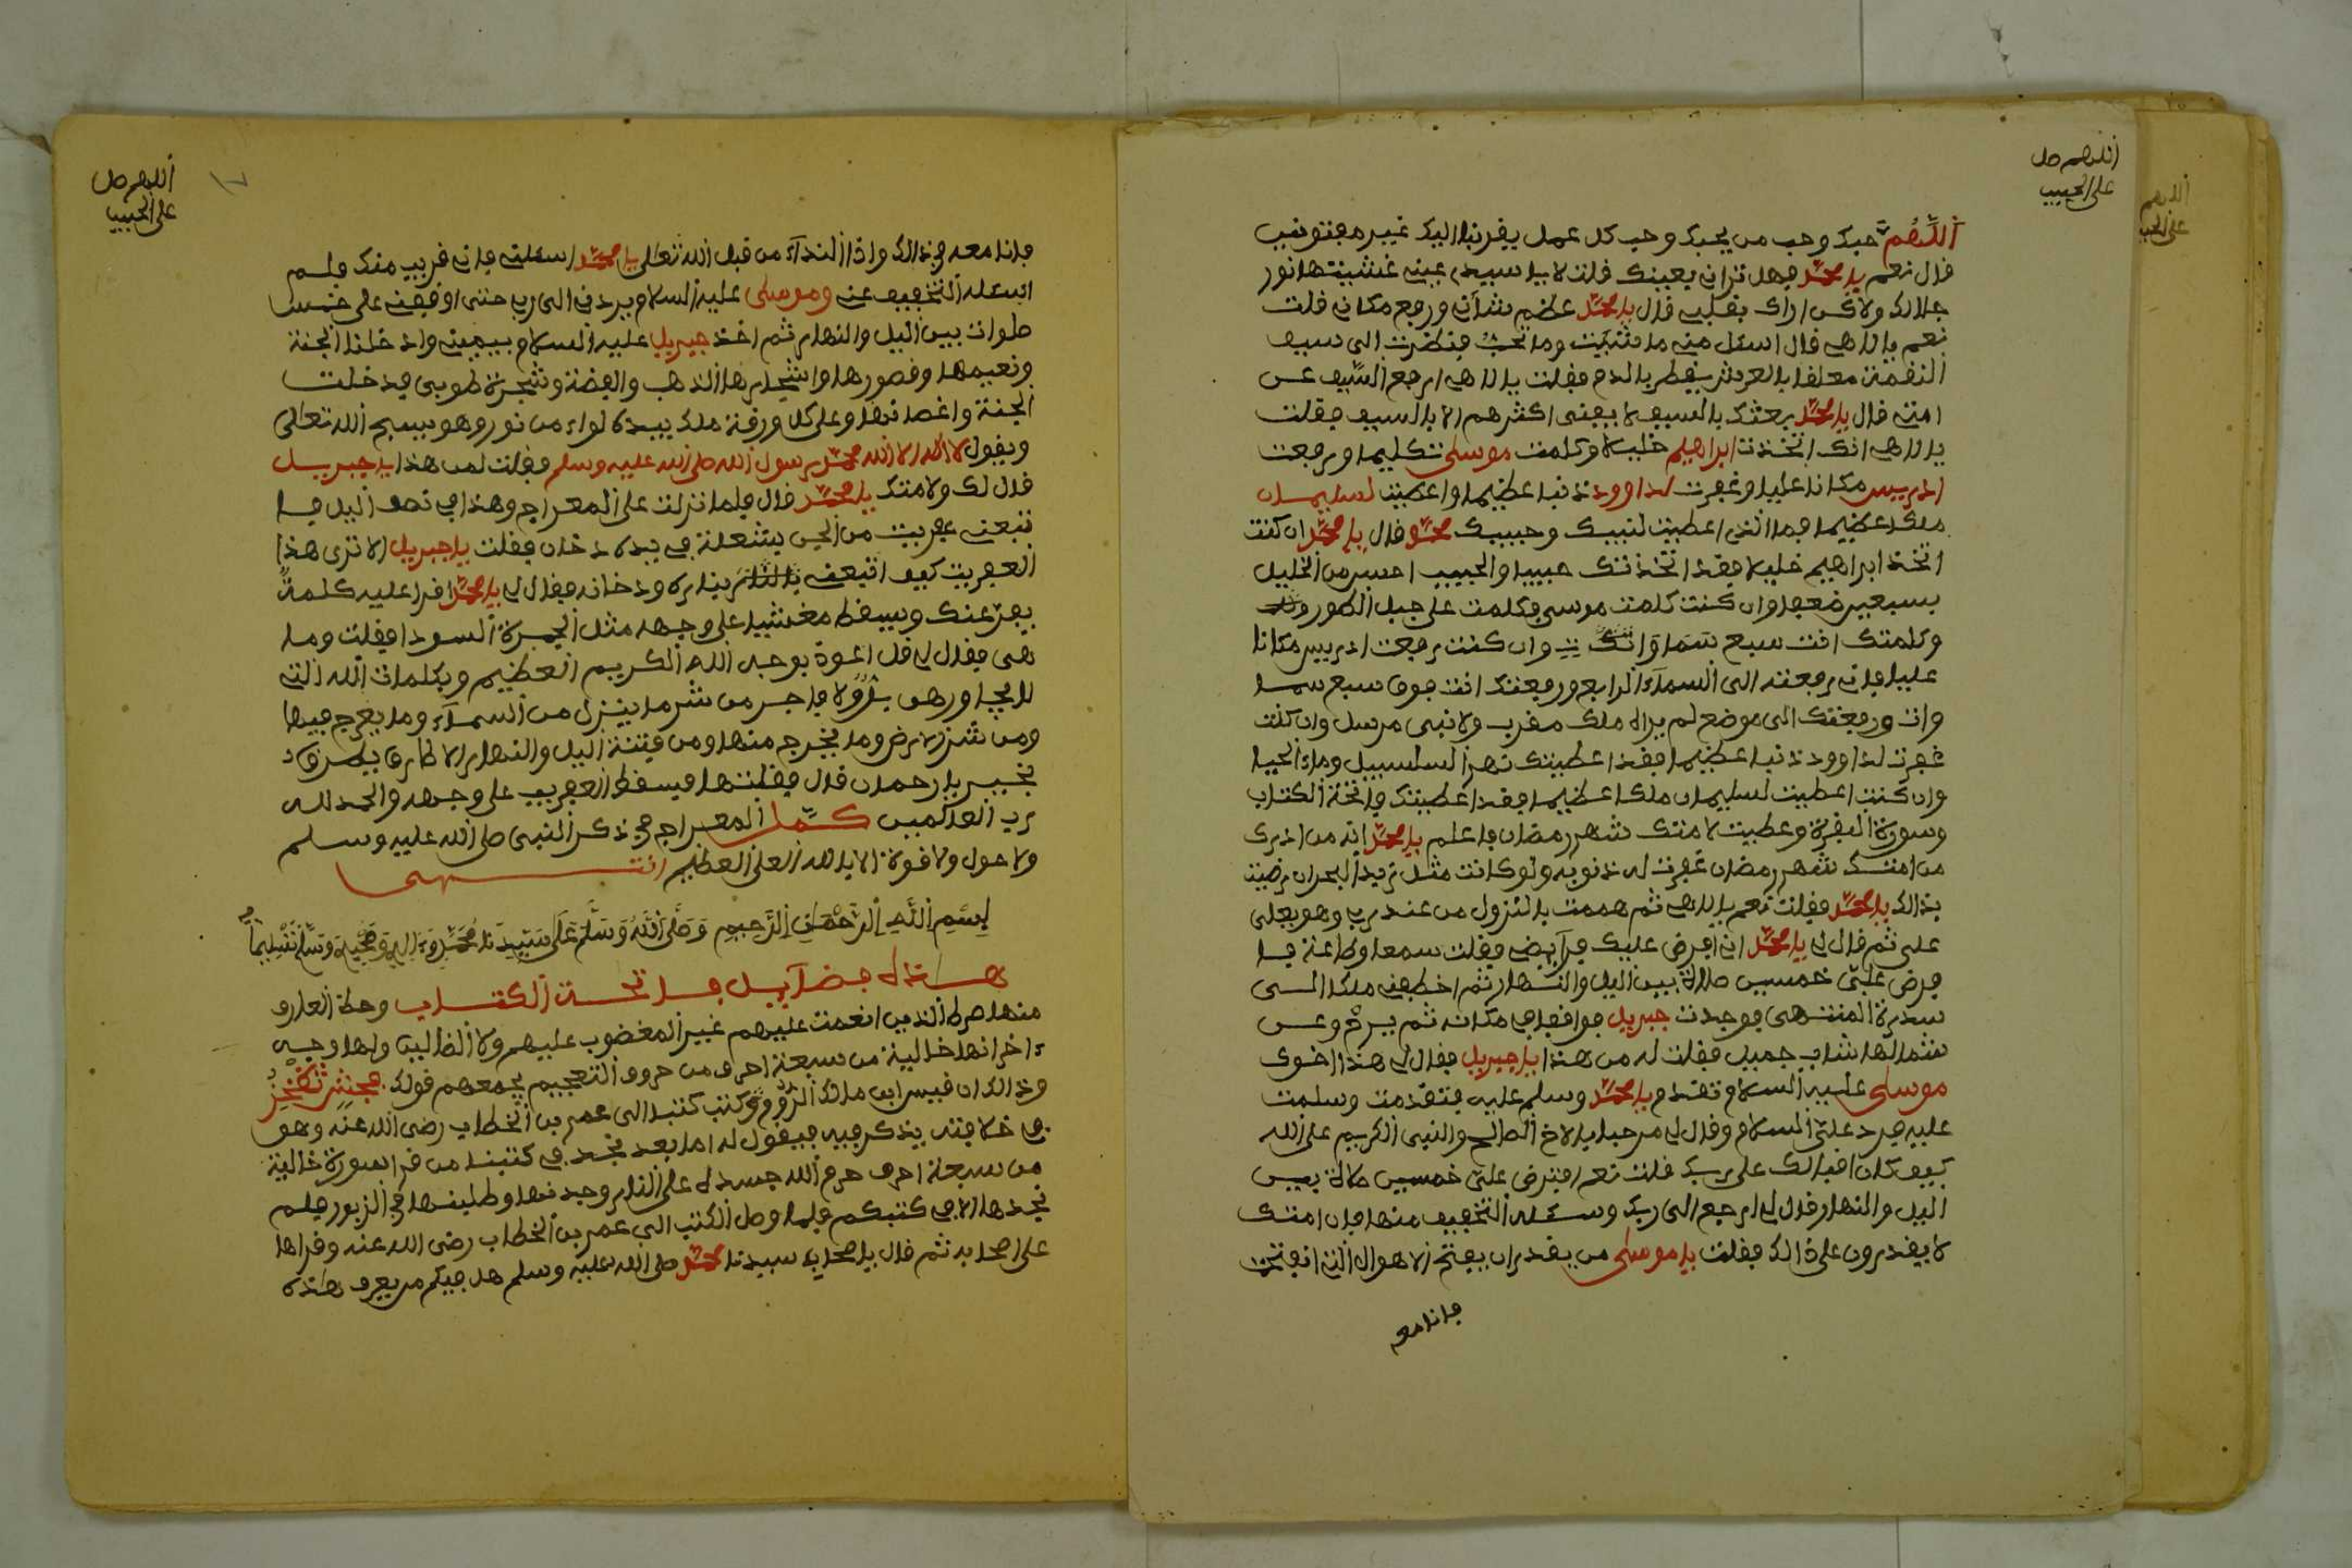 اللهم صل
على الحبيب
اللهم حبك وحب من يحبك وحب كل عمل يقربنا اليك غير مفتونين
قال نعم يا محمد فهل تراني بعينك قلت لا يا سيدي عيني غشيتها نور
جلالك ولاكن اراك بقلبي قال يا محمد عظم شأني ورفع مكاني قلت
نعم يا الاهي قال اسئل مني ما شئت وما تحب فنظرت الى سيف
النقمة معلقا بالعرش يقطر بالدم فقلت يا الاهي ارفع السيف عن
امتي قال يا محمد بعثتك بالسيف لا يفنى اكثرهم الا بالسيف فقلت
يا الاهي انك اتخذت ابراهيم خليلا وكلمت موسى تكليما ورفعت
ادريس مكانا عليا وغفرت لداوود ذنبا عظيما واعطيت لسليمان
ملكا عظيما فما الذي اعطيت لنبيك وحبيبك محمد قال يا محمد ان كنت
اتخذ ابراهيم خليلا فقد اتخذتك حبيبا والحبيب احسن من الخليل
بسبعين ضعفا وان كنت كلمت موسى فكلمت على جبل الطور
وكلمتك انت سبع سماوات وان كنت رفعت ادريس مكانا
عليا فاني رفعته الى السماء الرابع ورفعتك انت فوق سبع سما
وات ورفعتك الى موضع لم يراه ملك مقرب ولا نبي مرسل وان كنت
غفرت لداوود ذنبا عظيما فقد اعطيتك نهر السلسبيل وماء الحيا
وان كنت اعطيت لسليمان ملكا عظيما فقد اعطيتك فاتحة الكتاب
وسورة البقرة وعطيت لامتك شهر رمضان فاعلم يا محمد انه من ادرك
من امتك شهر رمضان غفرت له ذنوبه ولو كانت مثل زبد البحر ان رضيت
بذالك يا محمد فقلت نعم يا الاهي ثم هممت بالنزول من عند ربي وهو يجلى
علي ثم قال لي يا محمد اني افرض عليك فرآيض فقلت سمعا وطاعة فا
فرض علي خمسين صلاة بين اليل والنهار ثم اخطفني ملك الى
سدرة المنتهى فوجدت جبريل فوافقا في مكانه ثم يبرح وعن
شمالها شاب جميل فقلت له من هذا يا جبريل فقال لي هذا اخوك
موسى عليه السلام تقدم يا محمد وسلم عليه فتقدمت وسلمت
عليه فرد علي السلام وقال لي مرحبا بالاخ الصالح والنبي الكريم على الله
كيف كان اقبالك على ربك قلت نعم افترض علي خمسين صلاة بين
اليل والنهار قال لي ارجع الى ربك وسئله التخفيف منها فان امتك
لا يقدرون على ذالك فقلت يا موسى من يقدر ان يفتح الاهوال التي انفتحن
فانا مع
اللهم صل
على الحبيب
فانا معه في ذالك واذا النداء من قبل الله تعالى يا محمد اسئلني فاني قريب منك فلم
اسئله التخفيف عني وموسى عليه السلام يردني الى ربي حتى اوقفني على خمس
صلوات بين اليل والنهار ثم اخذ جبريل عليه السلام بيميني وادخلنا الجنة
ونعيمها وقصورها واشجارها الذهب والفضة وشجرة طوبى فدخلت
الجنة واغصانها وعلى كل ورقة ملك بيده لواء من نور وهو يسبح الله تعالى
ويقول لا اله الا الله محمد رسول الله صلى الله عليه وسلم فقلت لمن هذا يا جبريل
قال لك ولامتك يا محمد قال فلما نزلت على المعراج وهذا في نصف اليل فا
تبعني عفريت من الجن بشعلة في يده دخان فقلت يا جبريل الا ترى هذا
العفريت كيف اتبعني بالنار بناره ودخانه فقال لي يا محمد اقرا عليه كلمة
يفر عنك ويسقط مغشيا على وجهه مثل الجمرة السودا فقلت وما
هي فقال لي قل اعوذ بوجه الله الكريم العظيم وبكلمات الله التي
لا يجاورهن بر ولا فاجر من شر ما ينزل من السماء وما يعرج فيها
ومن شر الارض وما يخرج منها ومن فتنة اليل والنهار الا طارق يطرق
بخير يا رحمان قال فقلتها فسقط العفريت على وجهه والحمد لله
رب العالمين كمل المعراج في ذكر النبي صلى الله عليه وسلم
ولا حول ولا قوة الا بالله العلي العظيم انتهى
بسم الله الرحمان الرحيم وصلى الله وسلم على سيدنا محمد وءاله وصحبه وسلم تسليما
هاذه فضآيل فاتحة الكتاب وحظ العارف
منها صرط الذين انعمت عليهم غير المغضوب عليهم ولا الضالين ولها وجه
ءاخر انها خالية من سبعة احرف من حروف التعجيم يجمعهم قولك فجشث تظخز
وذالك ان قيس ابن مالك الرومي كتب كتبا الى عمر بن الخطاب رضى الله عنه وهو
في خلافته يذكر فيه فيقول له اما بعد نجد في كتبنا من قرا سورة خالية
من سبعة احرف حرم الله جسده على النار وجدنها وطلبنها في الزبور فلم
نجدها الا في كتبكم فلما وصل الكتب الى عمر بن الخطاب رضى الله عنه وقراها
على اصحابه ثم قال يا صحاب سيدنا محمد صلى الله عليه وسلم هل فيكم من يعرف هذه